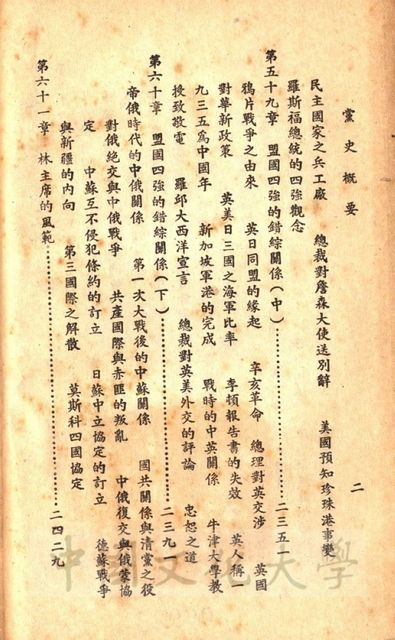 黨史概要　二
民主國家之兵工廠　總裁對詹森大使送別辭　美國預知珍珠港事變
羅斯福總統的四強觀念
第五十九章　盟國四強的錯綜關係（中）…………二三五一
鴉片戰爭之由來　英日同盟的緣起　辛亥革命　總理對英交涉　英國
對華新政策　英美日三國之海軍比率　李頓報告書的失效　英人稱一
九三五爲中國年　新加坡軍港的完成　戰時的中英關係　牛津大學教
授致敬電　羅邱大西洋宣言　總裁對英美外交的評論　忠恕之道
第六十章　盟國四強的錯綜關係（下）…………二三九一
帝俄時代的中俄關係　第一次大戰後的中蘇關係　國共關係與清黨之役
對俄絕交與中俄戰爭　共產國際與赤匪的叛亂　中俄復交與俄蒙協
定　中蘇互不侵犯條約的訂立　日蘇中立協定的訂立　德蘇戰爭
與新疆的內向　第三國際之解散　莫斯科四國協定
第六十一章　林主席的風範…………二四二九
中國文化大學